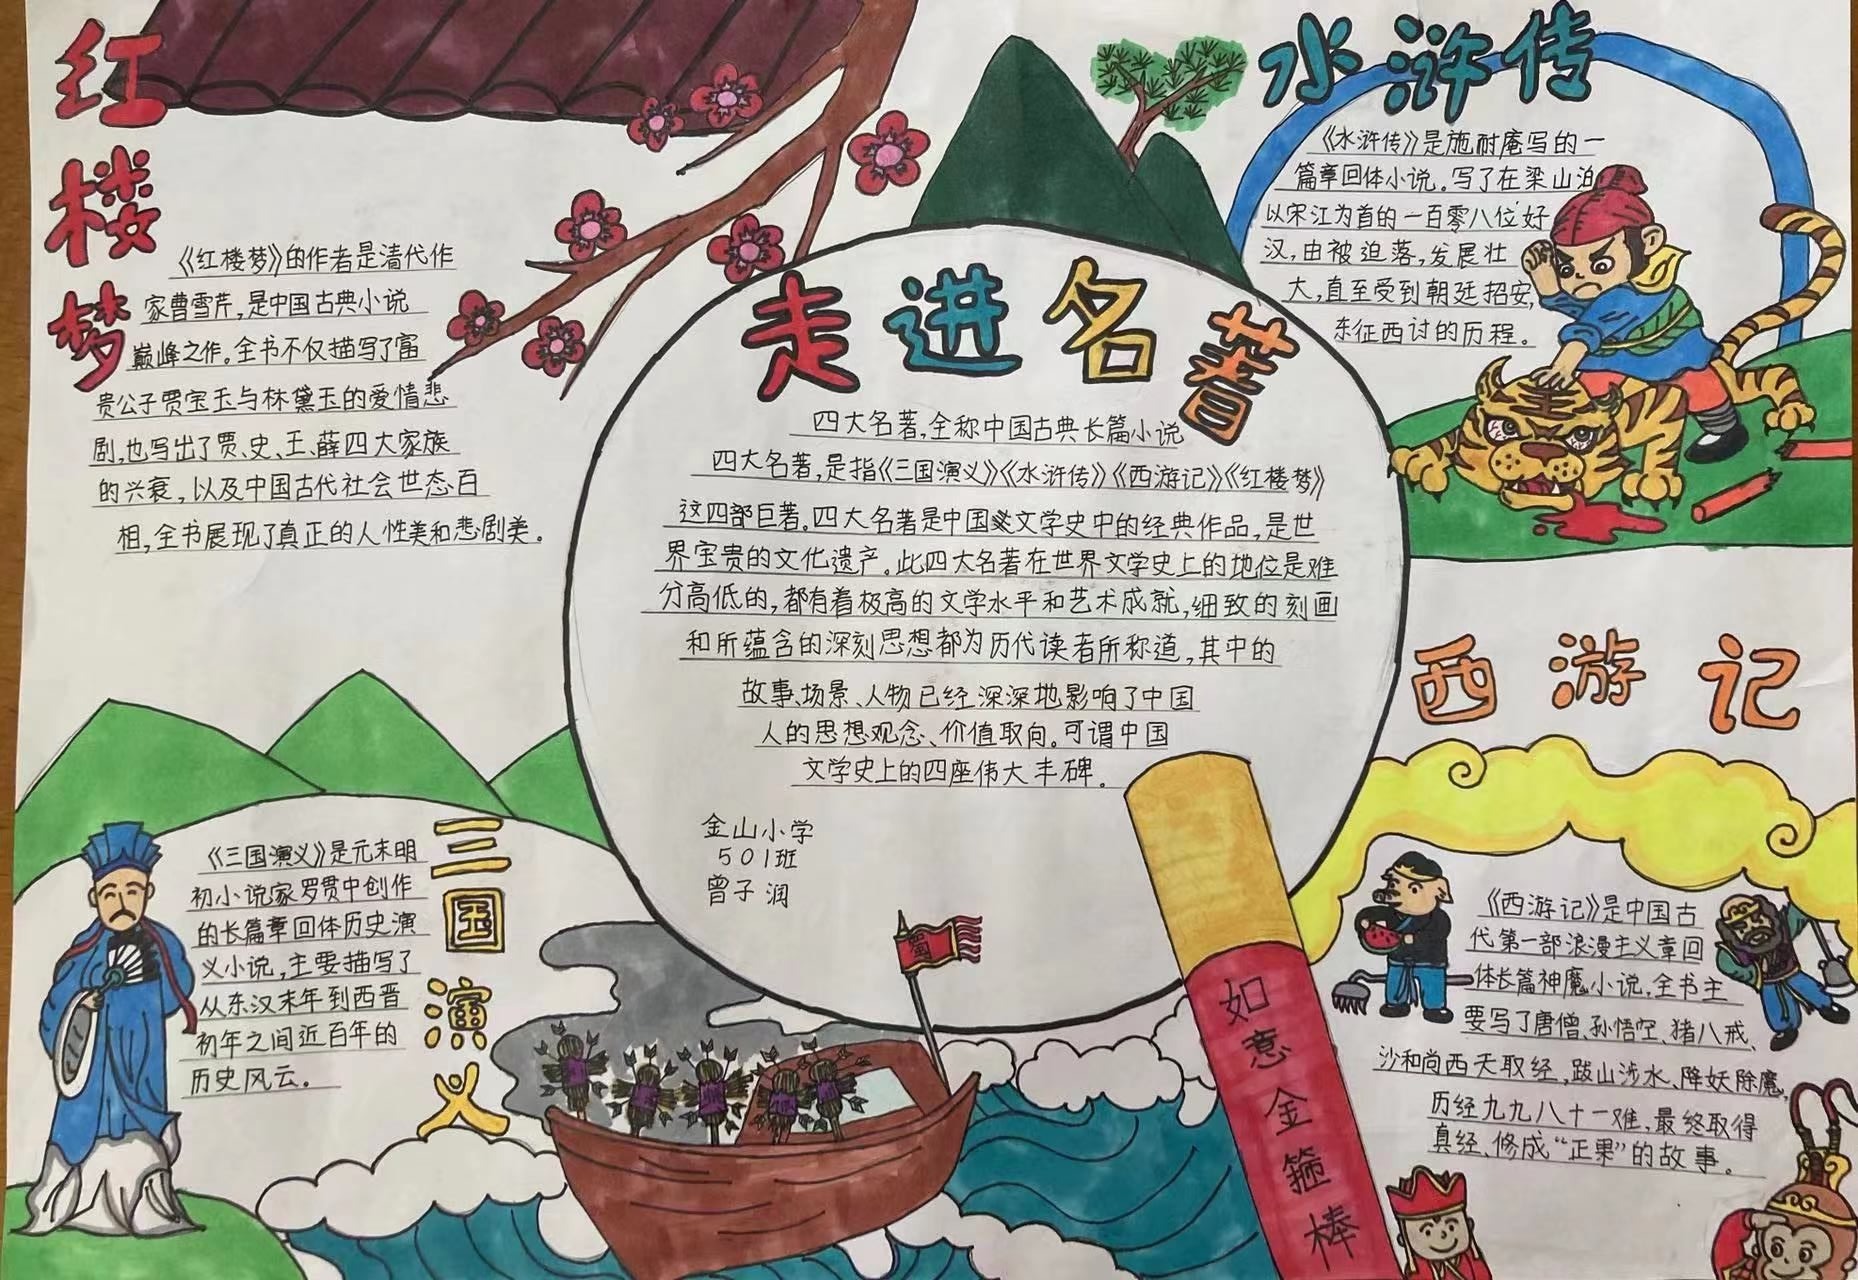 红楼梦
《红楼梦》的作者是清代作
家曹雪芹，是中国古典小说
巅峰之作。全书不仅描写了富
贵公子贾宝玉与林黛玉的爱情悲
剧，也写出了贾、史、王、薛四大家族
的兴衰，以及中国古代社会世态百
相，全书展现了真正的人性美和悲剧美。
水浒传
《水浒传》是施耐庵写的一
篇章回体小说。写了在梁山泊
以宋江为首的一百零八位好
汉，由被迫落，发展壮
大，直至受到朝廷招安，
东征西讨的历程。
走进名著
四大名著，全称中国古典长篇小说
四大名著，是指《三国演义》《水浒传》《西游记》《红楼梦》
这四部巨著。四大名著是中国文学史中的经典作品，是世
界宝贵的文化遗产。此四大名著在世界文学史上的地位是难
分高低的，都有着极高的文学水平和艺术成就，细致的刻画
和所蕴含的深刻思想都为历代读者所称道，其中的
故事、场景、人物已经深深地影响了中国
人的思想观念、价值取向。可谓中国
文学史上的四座伟大丰碑。
金山小学
501班
曾子润
三国演义
《三国演义》是元末明
初小说家罗贯中创作
的长篇章回体历史演
义小说，主要描写了
从东汉末年到西晋
初年之间近百年的
历史风云。
蜀
如意金箍棒
西游记
《西游记》是中国古
代第一部浪漫主义章回
体长篇神魔小说，全书主
要写了唐僧、孙悟空、猪八戒、
沙和尚西天取经，跋山涉水、降妖除魔，
历经九九八十一难，最终取得
真经、修成“正果”的故事。